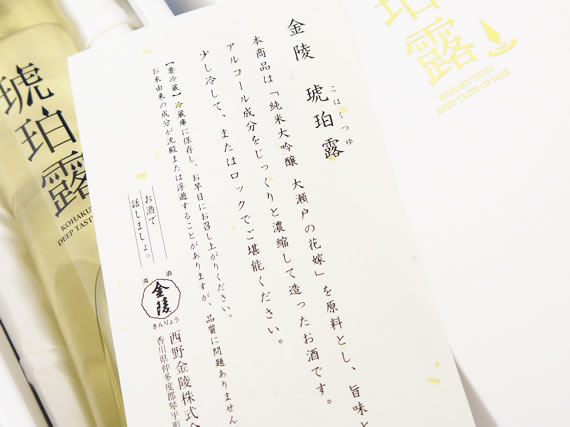 琥珀露
KOHAKUTSUYU
DEEP TASTE OF SAKE
金陵 琥珀露
こはくつゆ
本商品は「純米大吟醸 大瀬戸の花嫁」を原料とし、旨味と
アルコール成分をじっくりと濃縮して造ったお酒です。
少し冷して、またはロックでご堪能ください。
【要冷蔵】冷蔵庫に保存し、お早目にお召し上がりください。
お米由来の成分が沈殿または浮遊することがありますが、品質に問題ありません
お酒で
話しましょ。
清酒
金陵
きんりょう
西野金陵株式会
香川県仲多度郡琴平町
珀露
KOHAKUTSUYU
DEEP TASTE OF SAKE